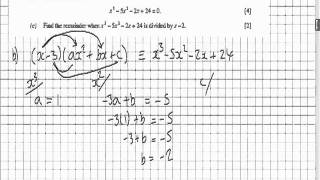 x³ - 5x² - 2x + 24 = 0. [4]
(c) Find the remainder when x³ - 5x² - 2x + 24 is divided by x - 2. [2]
b) (x-3)(ax²+bx+c) ≡ x³-5x²-2x+24
x³/ x²/ c/
a = 1 -3a+b = -5
-3(1)+b = -5
-3+b = -5
b = -2